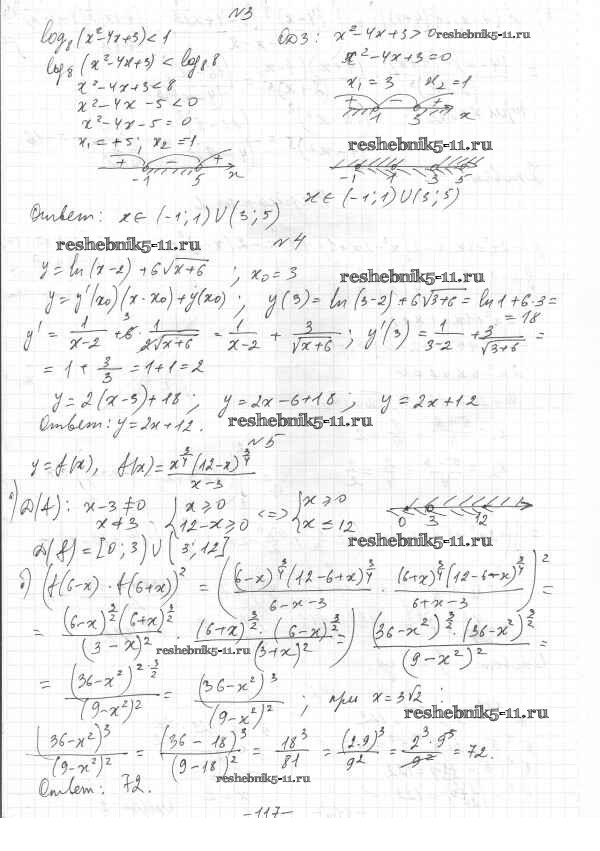 №3
log₈(x²-4x+3)<1 ОДЗ: x²-4x+3>0 reshebnik5-11.ru
log₈(x²-4x+3)<log₈8 x²-4x+3=0
x²-4x+3<8 x₁=3 x₂=1
x²-4x-5<0 + - +
x²-4x-5=0 1 3 x
x₁=+5; x₂=-1 reshebnik5-11.ru
+ - + -1 1 3 5
-1 5 x x∈(-1;1)∪(3;5)
Ответ: x∈(-1;1)∪(3;5)
reshebnik5-11.ru №4
y=ln(x-2)+6√(x+6) ; x₀=3 reshebnik5-11.ru
y=y'(x₀)(x-x₀)+y(x₀); y(3)=ln(3-2)+6√(3+6)=ln1+6·3=
=18
y'=1/(x-2)+6·1/(2√(x+6))=1/(x-2)+3/√(x+6); y'(3)=1/(3-2)+3/√(3+6)=
=1+3/3=1+1=2
y=2(x-3)+18; y=2x-6+18; y=2x+12
Ответ: y=2x+12. reshebnik5-11.ru
№5
y=f(x), f(x)=x^(3/4)(12-x)^(3/4)/(x-3)
а) D(f): x-3≠0 {x≥0 <=> {x≥0
x≠3 {12-x≥0 {x≤12 0 3 12
D(f)=[0;3)∪(3;12] reshebnik5-11.ru
б) (f(6-x)·f(6+x))²=((6-x)^(3/4)(12-6+x)^(3/4)/(6-x-3)·(6+x)^(3/4)(12-6-x)^(3/4)/(6+x-3))²=
=(6-x)^(3/2)(6+x)^(3/2)/(3-x)²·(6+x)^(3/2)·(6-x)^(3/2)/(3+x)²=(36-x²)^(3/2)·(36-x²)^(3/2)/(9-x²)²=
reshebnik5-11.ru
=(36-x²)^(2·3/2)/(9-x²)²=(36-x²)³/(9-x²)²; при x=3√2:
reshebnik5-11.ru
(36-x²)³/(9-x²)²=(36-18)³/(9-18)²=18³/81=(2·9)³/9²=2³·9³/9²=72.
Ответ: 72. reshebnik5-11.ru
-117-